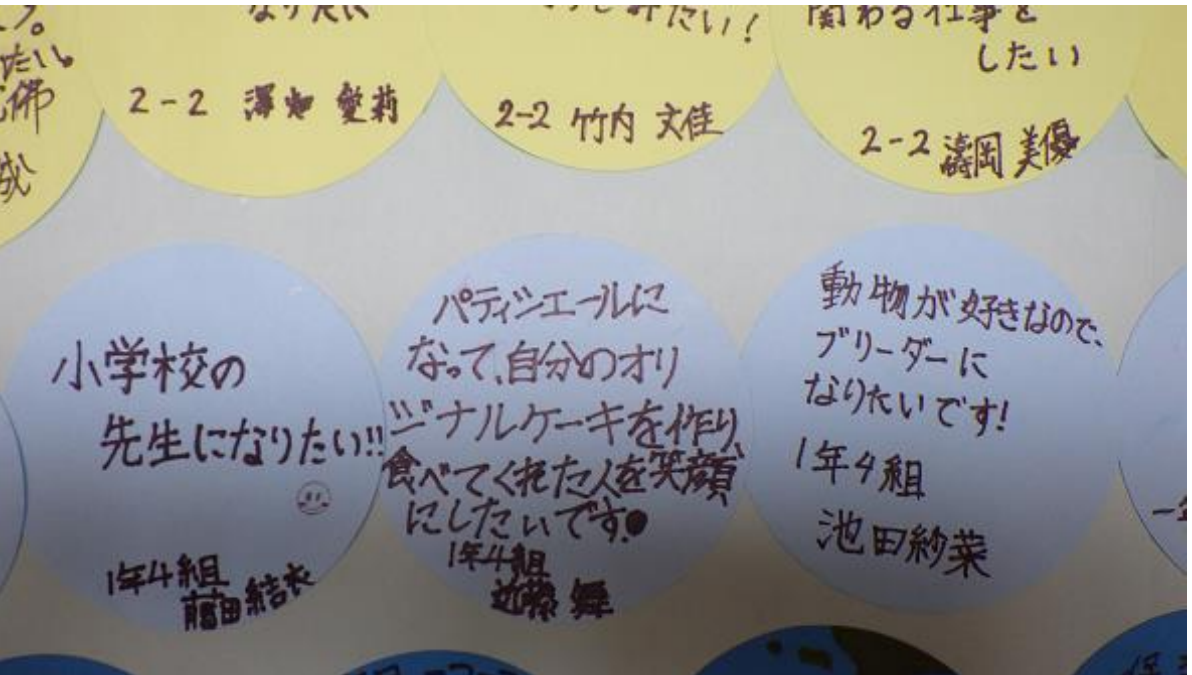 たい。
成
なりたい
2-2 澤畑 愛莉
たい!
2-2 竹内 文佳
関わる仕事を
したい
2-2 濤岡 美優
小学校の
先生になりたい!!
1年4組
藤田結衣
パティシエールに
なって、自分のオリ
ジナルケーキを作り、
食べてくれた人を笑顔
にしたいです。
1年4組
近藤 舞
動物が好きなので、
ブリーダーに
なりたいです!
1年4組
池田紗菜